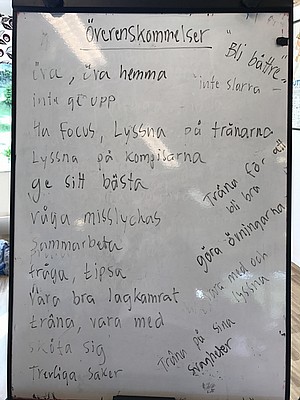 Överenskommelser
"Bli bättre"
öva, öva hemma
inte slarva
inte ge upp
Ha focus, Lyssna på tränarna
Lyssna på kompisarna
ge sitt bästa
våga misslyckas
sammarbeta
fråga, tipsa
Vara bra lagkamrat
träna, vara med
sköta sig
Trevliga saker
Träna för att
bli bra
göra övningarna
vara med och
lyssna
Träna på sina
svagheter